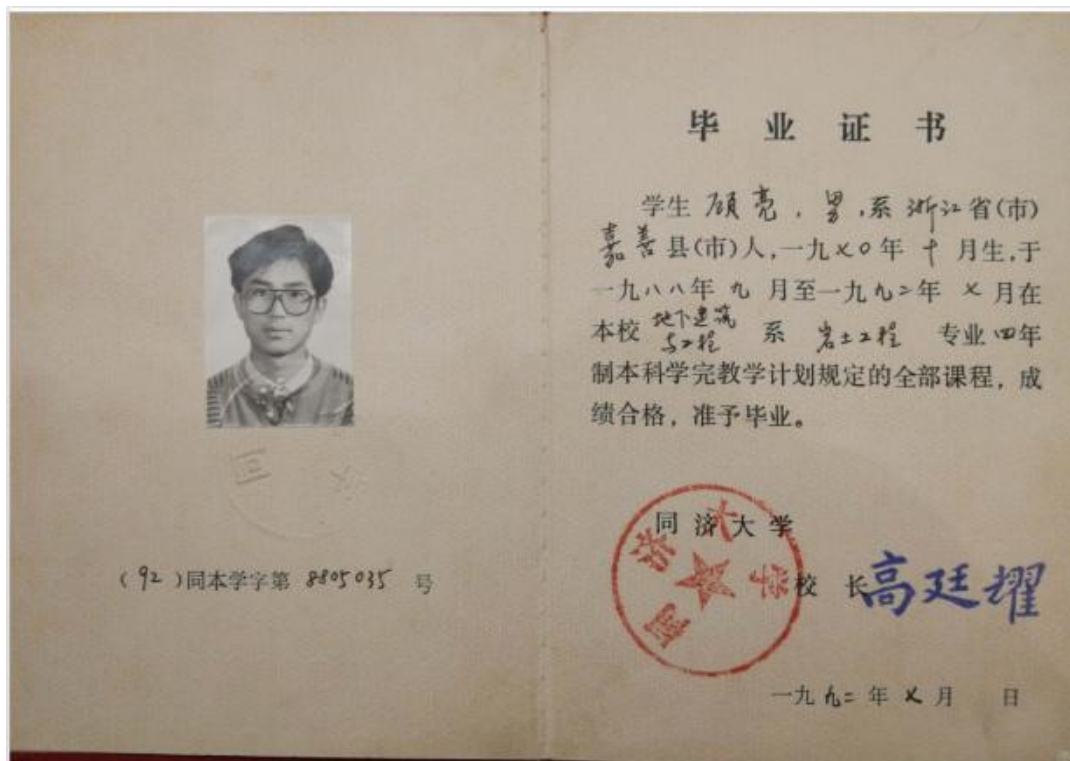 同济
(92)同本学字第 8805035 号
毕业证书
学生 顾亮,男,系 浙江 省(市)
嘉善县(市)人,一九七〇年 十 月生,于
一九八八年 九 月至一九九二年 七 月在
本校 地下建筑与工程 系 岩土工程 专业四年
制本科学完教学计划规定的全部课程,成
绩合格,准予毕业。
同济大学
同济大学
校长 高廷耀
一九九二年 七月 日